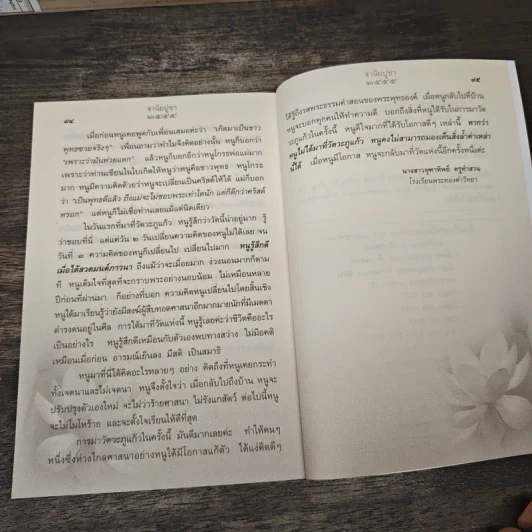 ๗๔
จานิยบูชา
๒๕๕๕
เมื่อก่อนหนูเคยพูดกับเพื่อนเสมอค่ะว่า "เกิดมาเป็นชาว
พุทธซวยจริงๆ" เพื่อนถามว่าทำไมจึงคิดอย่างนั้น หนูก็บอกว่า
"เพราะว่ามันห่วยแตก" แล้วหนูก็บอกอีกว่าหนูโกรธพ่อแม่มาก
เพราะว่าท่านเขียนในใบเกิดให้หนูว่าหนูคือชาวพุทธ หนูโกรธ
มาก หนูมีความคิดด้วยว่าหนูจะเปลี่ยนเป็นคริสต์ให้ได้ แม่ก็บอก
ว่า "เป็นพุทธดีแล้ว ถึงแม่จะไม่ชอบพระเท่าใดนัก แต่ก็ดีกว่าคริสต์
หรอก" แต่หนูก็ไม่เชื่อท่านเลยแม้แต่นิดเดียว
ในวันแรกที่มาที่วัดวะภูแก้ว หนูรู้สึกว่าวัดนี้น่าอยู่มาก รู้
ว่าชอบที่นี่ แต่แค่วัน ๒ วันเปลี่ยนความคิดของหนูไม่ได้เลย จน
วันที่ ๓ ความคิดของหนูก็เปลี่ยนไป เปลี่ยนไปมาก หนูรู้สึกดี
เมื่อได้สวดมนต์ภาวนา ถึงแม้ว่าจะเมื่อยมาก ง่วงนอนมากก็ตาม
ที่ หนูเต็มใจที่สุดที่จะกราบพระอย่างนอบน้อม ไม่เหมือนหลาย
ปีก่อนที่ผ่านมา ก็อย่างที่บอก ความคิดหนูเปลี่ยนไปโดยสิ้นเชิง
หนูได้มาเรียนรู้ว่ายังมีสงฆ์ผู้สืบทอดศาสนาอีกมากมายนักที่มีเมตตา
ดำรงตนอยู่ในศีล การได้มาที่วัดแห่งนี้ หนูรู้เลยค่ะว่าชีวิตคืออะไร
เป็นอย่างไร หนูรู้สึกดีเหมือนกับตัวเองพบทางสว่าง ไม่มีอคติ
เหมือนเมื่อก่อน อารมณ์เย็นลง มีสติ เป็นสมาธิ
หนูมาที่นี่ได้คิดอะไรหลายๆ อย่าง คิดถึงที่หนูเคยกระทำ
ทั้งเจตนาและไม่เจตนา หนูจึงตั้งใจว่า เมื่อกลับไปถึงบ้าน หนูจะ
ปรับปรุงตัวเองใหม่ จะไม่ว่าร้ายศาสนา ไม่รังแกสัตว์ ต่อไปนี้หนู
จะไม่โมโหร้าย และจะตั้งใจเรียนให้ดีที่สุด
การมาวัดวะภูแก้วในครั้งนี้ มันดีมากเลยค่ะ ทำให้คนๆ
หนึ่งซึ่งห่างไกลศาสนาอย่างหนูได้มีโอกาสแก้ตัว ได้แง่คิดดีๆ
จานิยบูชา
๒๕๕๕
๗๕
ได้รู้ถึงรสพระธรรมคำสอนของพระพุทธองค์ เมื่อหนูกลับไปที่บ้าน
หนูจะบอกทุกคนให้ทำความดี บอกถึงสิ่งที่หนูได้รับในการมาวัด
วะภูแก้วในครั้งนี้ หนูดีใจมากที่ได้รับโอกาสดีๆ เหล่านี้ หากว่า
หนูไม่ได้มาที่วัดวะภูแก้ว หนูคงไม่สามารถมองเห็นสิ่งล้ำค่าเหล่า
นี้ได้ เมื่อหนูมีโอกาส หนูจะกลับมาที่วัดแห่งนี้อีกครั้งหนึ่งค่ะ
นางสาวจุฑาทิพย์ ครุฑสวน
โรงเรียนพระทองคำวิทยา